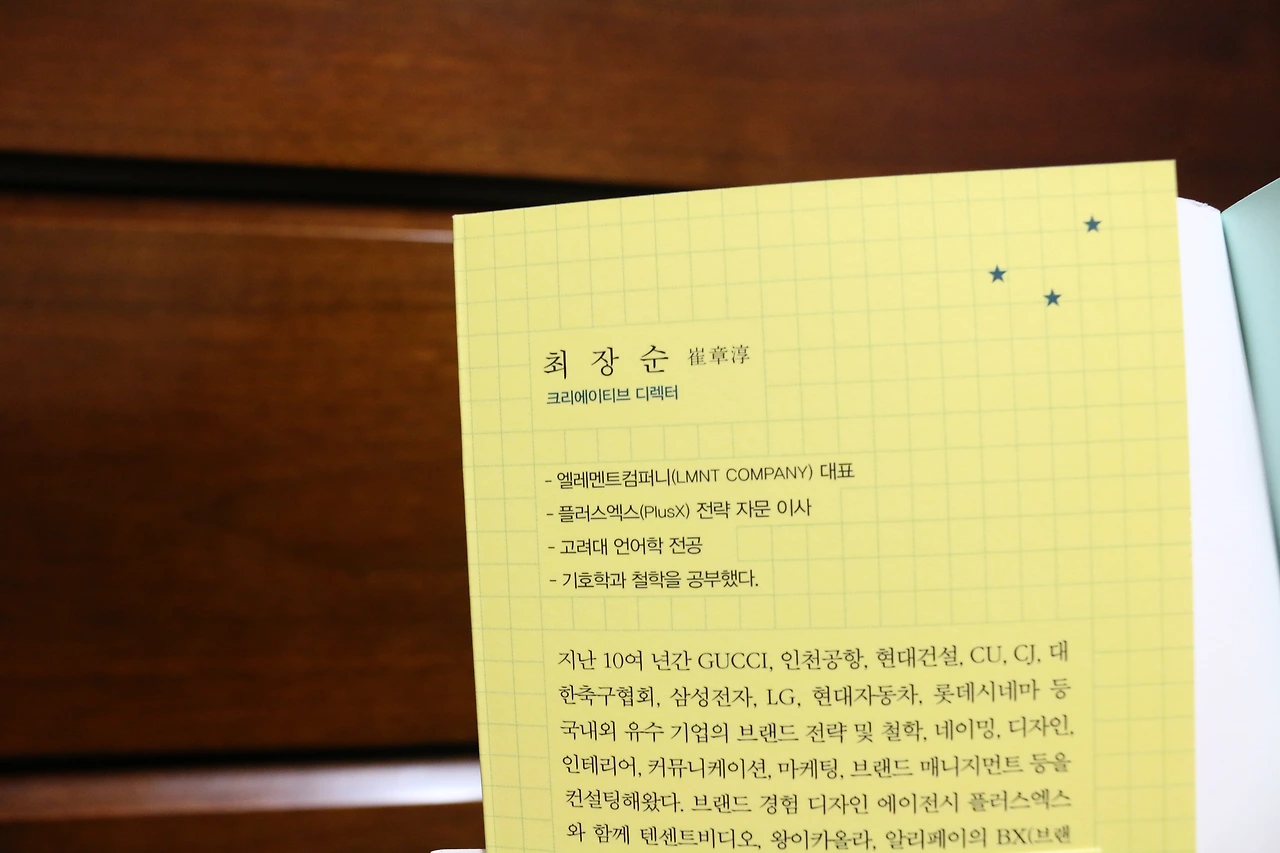 최 장 순 崔章淳
크리에이티브 디렉터
- 엘레멘트컴퍼니(LMNT COMPANY) 대표
- 플러스엑스(PlusX) 전략 자문 이사
- 고려대 언어학 전공
- 기호학과 철학을 공부했다.
지난 10여 년간 GUCCI, 인천공항, 현대건설, CU, CJ, 대
한축구협회, 삼성전자, LG, 현대자동차, 롯데시네마 등
국내외 유수 기업의 브랜드 전략 및 철학, 네이밍, 디자인,
인테리어, 커뮤니케이션, 마케팅, 브랜드 매니지먼트 등을
컨설팅해왔다. 브랜드 경험 디자인 에이전시 플러스엑스
와 함께 텐센트비디오, 왕이카올라, 알리페이의 BX(브랜